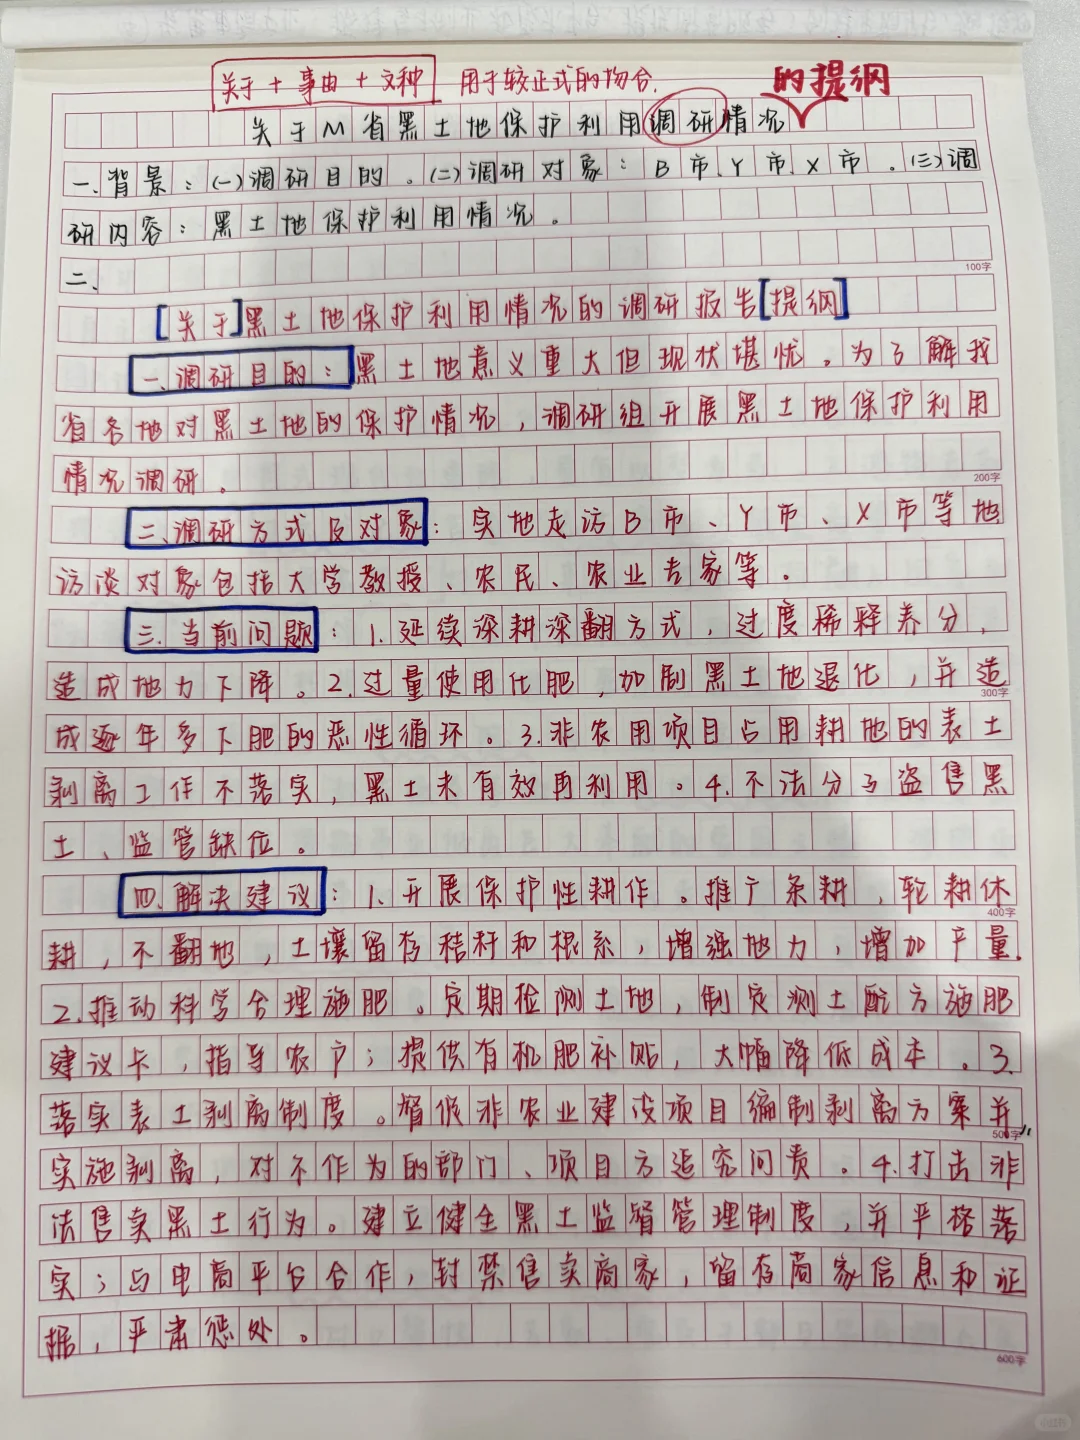 关于+事由+文种 用于较正式的场合.
的提纲
关于M省黑土地保护利用调研情况
一、背景:(一)调研目的。(二)调研对象:B市、Y市、X市。(三)调
研内容:黑土地保护利用情况。
二、
100字
[关于]黑土地保护利用情况的调研报告[提纲]
一、调研目的:黑土地意义重大但现状堪忧。为了解我
省各地对黑土地的保护情况,调研组开展黑土地保护利用
情况调研。
200字
二、调研方式及对象:实地走访B市、Y市、X市等地
访谈对象包括大学教授、农民、农业专家等。
三、当前问题:1.延续深耕深翻方式,过度稀释养分,
造成地力下降。2.过量使用化肥,加剧黑土地退化,并造
300字
成逐年多下肥的恶性循环。3.非农用项目占用耕地的表土
剥离工作不落实,黑土未有效再利用。4.不法分子盗售黑
土、监管缺位。
四、解决建议:1.开展保护性耕作。推广条耕,轮耕休
400字
耕,不翻地,土壤留存秸秆和根系,增强地力,增加产量.
2.推动科学合理施肥。定期检测土地,制定测土配方施肥
建议卡,指导农户;提供有机肥补贴,大幅降低成本。3.
落实表土剥离制度。督促非农业建设项目编制剥离方案并
500字
实施剥离,对不作为的部门、项目方追究问责。4.打击非
法售卖黑土行为。建立健全黑土监督管理制度,并严格落
实;与电商平台合作,封禁售卖商家,留存商家信息和证
据,严肃惩处。
600字
小红书